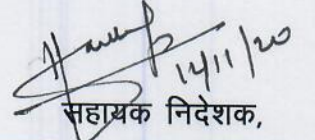 14/11/20
सहायक निदेशक,